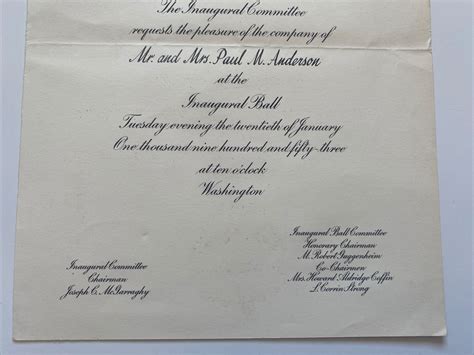 The Inaugural Committee
requests the pleasure of the company of
Mr. and Mrs. Paul M. Anderson
at the
Inaugural Ball
Tuesday evening the twentieth of January
One thousand nine hundred and fifty-three
at ten o'clock
Washington
Inaugural Committee
Chairman
Joseph C. McGarraghy
Inaugural Ball Committee
Honorary Chairman
M. Robert Guggenheim
Co-Chairmen
Mrs. Howard Aldridge Coffin
L. Corrin Strong